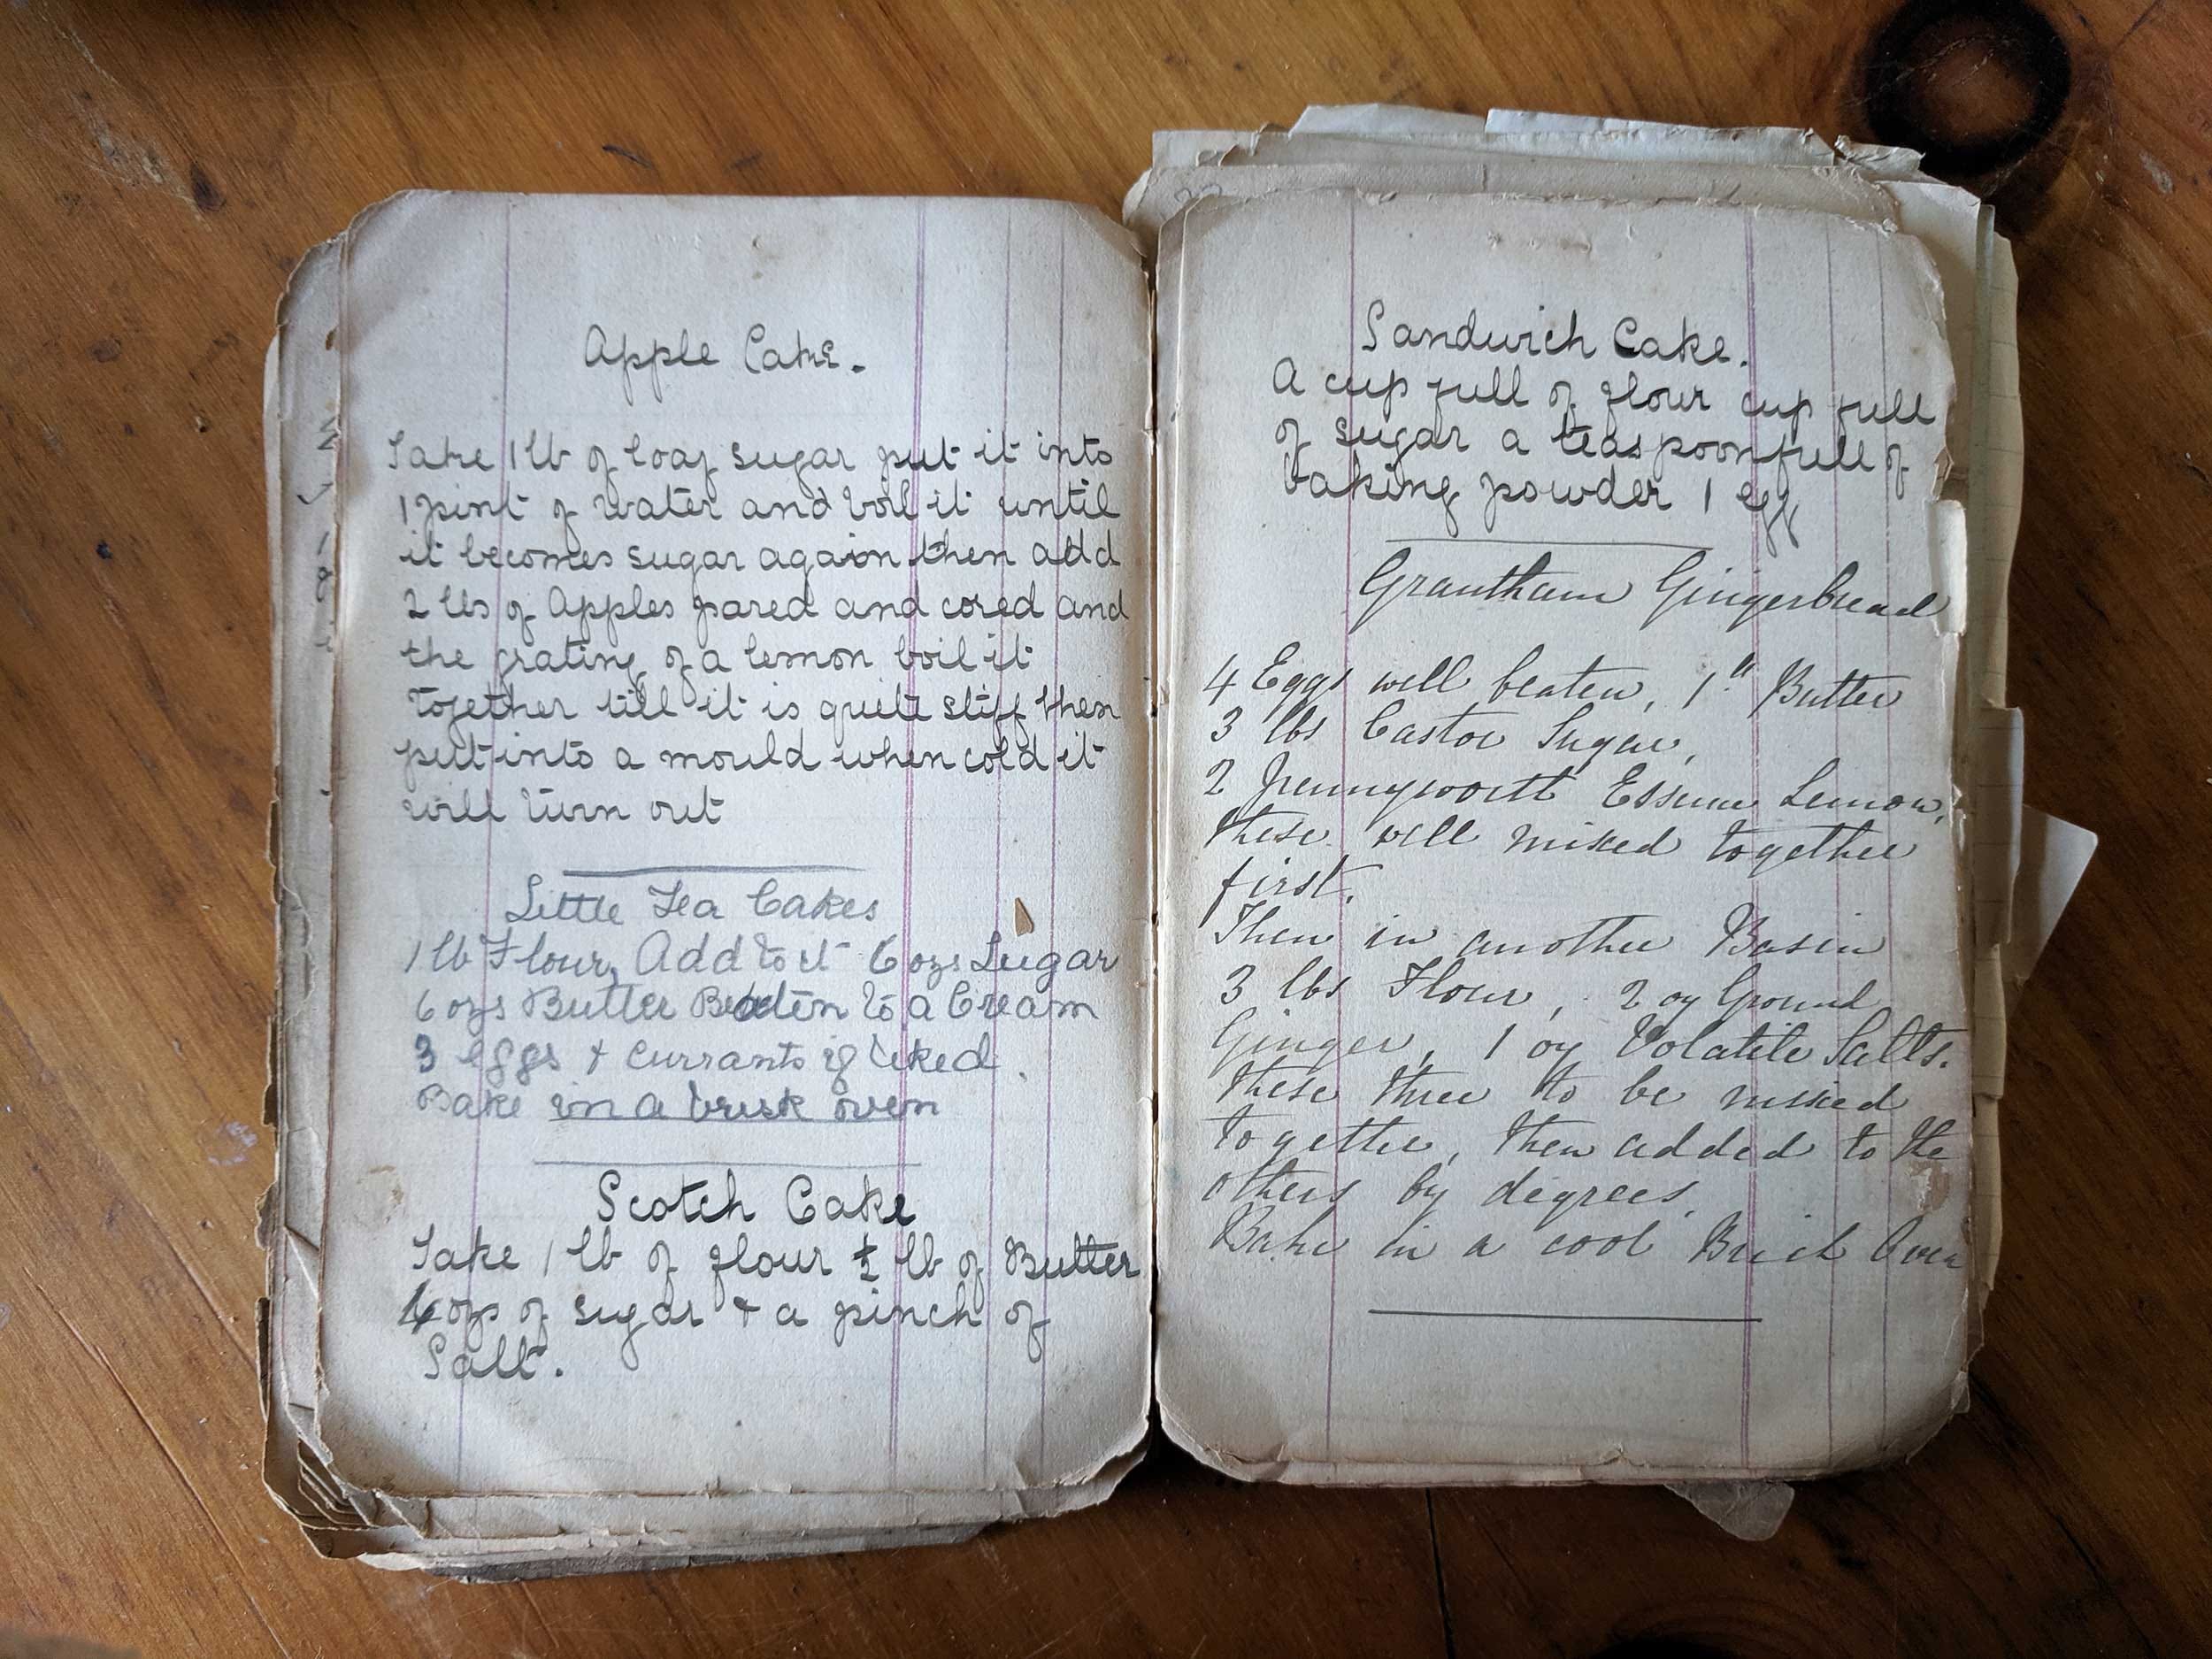 Apple Cake.
Take 1 lb of loaf sugar put it into
1 pint of water and boil it until
it becomes sugar again then add
2 lbs of Apples pared and cored and
the grating of a lemon boil it
together till it is quite stiff then
put into a mould when cold it
will turn out
Little Tea Cakes
1 lb Flour, Add to it 6 ozs Sugar
6 ozs Butter Beaten to a Cream
3 eggs & currants if liked.
Bake in a brisk oven
Scotch Cake
Take 1 lb of flour ½ lb of Butter
ozs of sugar & a pinch of
Salt.
Sandwich Cake.
A cup full of flour cup full
of sugar a teaspoonfull of
baking powder 1 egg
Grantham Gingerbread
4 Eggs well beaten, 1 " Butter
3 lbs Castor Sugar,
2 pennyworth Essence Lemon,
these well mixed together
first.
Then in another Basin
3 lbs Flour, 2 oz Ground
Ginger, 1 oz Volatile Salts.
these three to be mixed
together, then added to the
others by degrees.
Bake in a cool Brick Oven